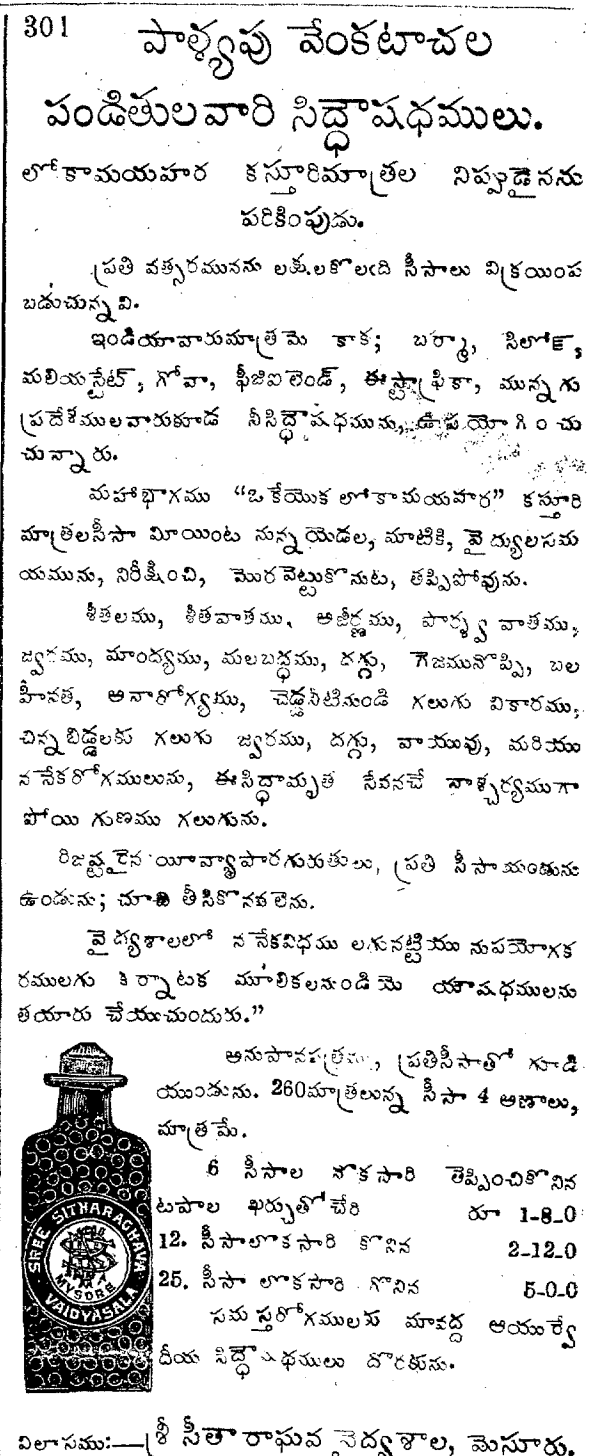 301
పాళ్యపు వేంకటాచల
పండితులవారి సిద్ధౌషధములు.
లోకామయహర కస్తూరిమాత్రల నిప్పుడైనను
పరికింపుడు.
ప్రతి వత్సరమునను లక్షలకొలఁది సీసాలు విక్రయింప
బడుచున్నవి.
ఇండియావారుమాత్రమె కాక; బర్మా, సిలోన్,
మలియస్టేట్, గోవా, ఫీజిఐలెండ్, ఈస్టాఫ్రికా, మున్నగు
ప్రదేశములవారుకూడ నీసిద్ధౌషధమును, ఉపయోగించు
చున్నారు.
మహాభాగము “ఒకేయొక లోకామయహర” కస్తూరి
మాత్రలసీసా మీయింట నున్నయెడల, మాటికి, వైద్యులసమ
యమును, నిరీక్షించి, మొరవెట్టుకొనుట, తప్పిపోవును.
శీతలము, శీతవాతము, అజీర్ణము, పార్శ్వవాతము,
జ్వరము, మాంద్యము, మలబద్ధము, దగ్గు, గెజమునొప్పి, బల
హీనత, అనారోగ్యము, చెడ్డనీటినుండి గలుగు వికారము,
చిన్నబిడ్డలకు గలుగు జ్వరము, దగ్గు, వాయువు, మరియు
ననేకరోగములును, ఈసిద్ధామృత సేవనచే నాశ్చర్యముగా
పోయి గుణము గలుగును.
రిజిష్టరైన యీవ్యాపారగురుతులు, ప్రతి సీసాయందును
ఉండును; చూచి తీసికొనవలెను.
వైద్యశాలలో ననేకవిధము లగునట్టియు నుపయోగక
రములగు కర్నాటక మూలికలనుండియె యౌషధములను
తయారు చేయుచుందురు.”
అనుపానపత్రము, ప్రతిసీసాతో గూడి
యుండును. 260మాత్రలున్న సీసా 4 అణాలు,
మాత్రమే.
6 సీసాల నొకసారి తెప్పించికొనిన
టపాల ఖర్చుతోచేరి రూ 1-8-0
12. సీసాలొకసారి కొనిన 2-12-0
25. సీసా లొకసారి గొనిన 5-0-0
సమస్తరోగములకు మావద్ద ఆయుర్వే
దీయ సిద్ధౌషధములు దొరకును.
SREE SITHARAGHAVA
MYSORE
VAIDYASALA
విలాసము:—శ్రీ సీతారాఘవ వైద్యశాల, మైసూరు.